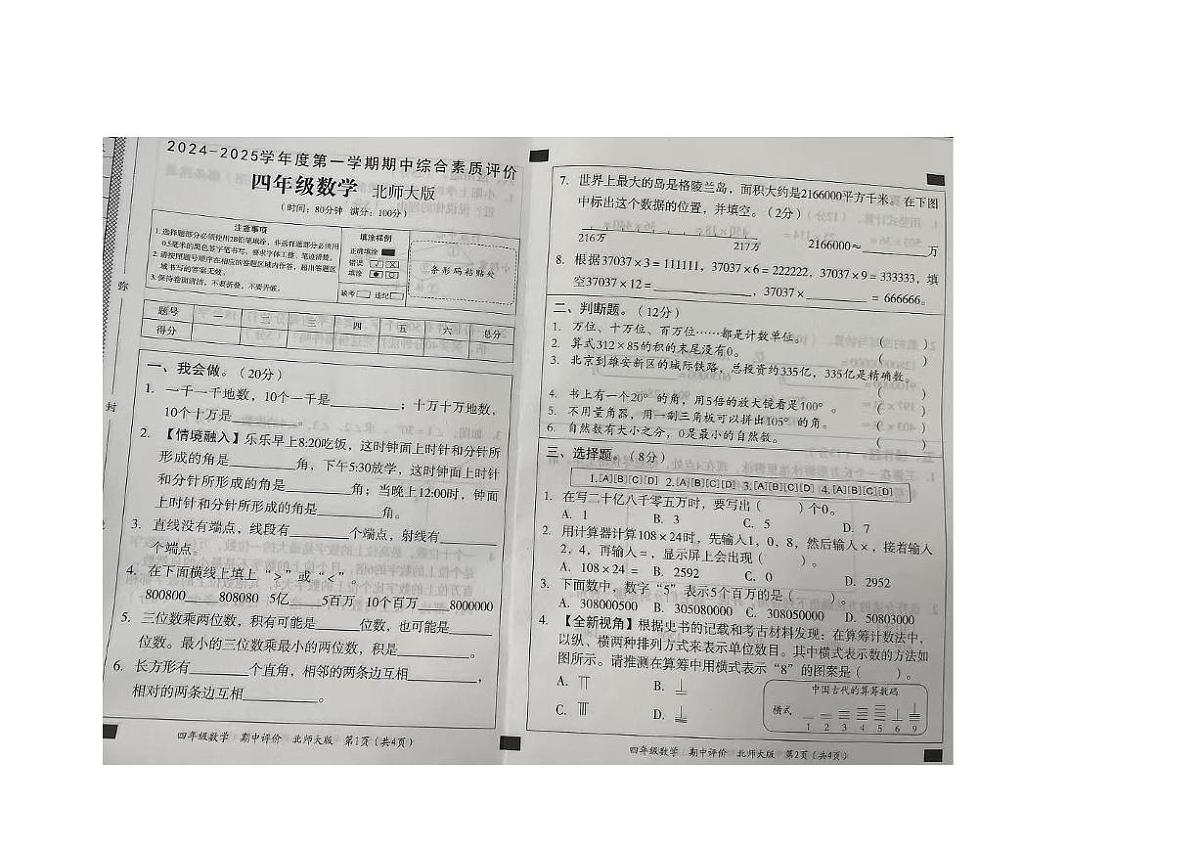 2024-2025学年度第一学期期中综合素质评价
四年级数学 北师大版
(时间：80分钟 满分：100分)
注意事项
1.选择题部分必须使用2B铅笔填涂，非选择题部分必须用
0.5毫米的黑色签字笔书写，要求字体工整、笔迹清楚。
2.请按照题号顺序在相应的答题区域内作答，超出答题区
域书写的答案无效。
3.保持卷面清洁，不要折叠、不要弄破。
填涂样例
正确填涂
错误
填涂
缺考 违纪
条形码粘贴处
题号 一 二 三 四 五 六 总分
得分
弥
封
一、我会做。(20分)
1. 一千一千地数，10个一千是________；十万十万地数，
10个十万是________。
2. 【情境融入】乐乐早上8:20吃饭，这时钟面上时针和分针所
形成的角是________角，下午5:30放学，这时钟面上时针
和分针所形成的角是________角；当晚上12:00时，钟面
上时针和分针所形成的角是________角。
3. 直线没有端点，线段有________个端点，射线有________
个端点。
4. 在下面横线上填上“>”或“<”。
800800____808080 5亿____5百万 10个百万____8000000
5. 三位数乘两位数，积有可能是______位数，也可能是______
位数。最小的三位数乘最小的两位数，积是________。
6. 长方形有________个直角，相邻的两条边互相________，
相对的两条边互相________。
四年级数学 期中评价 北师大版 第1页(共4页)
7. 世界上最大的岛是格陵兰岛，面积大约是2166000平方千米。在下图
中标出这个数据的位置，并填空。(2分)
216万 217万 2166000≈________万
8. 根据37037×3=111111，37037×6=222222，37037×9=333333，填
空37037×12=________，37037×________=666666。
二、判断题。(12分)
1. 万位、十万位、百万位……都是计数单位。 ( )
2. 算式312×85的积的末尾没有0。 ( )
3. 北京到雄安新区的城际铁路，总投资约335亿，335亿是精确数。
( )
4. 书上有一个20°的角，用5倍的放大镜看是100°。 ( )
5. 不用量角器，用一副三角板可以拼出105°的角。 ( )
6. 自然数有大小之分，0是最小的自然数。 ( )
三、选择题。(8分)
1.[A][B][C][D] 2.[A][B][C][D] 3.[A][B][C][D] 4.[A][B][C][D]
1. 在写二十亿八千零五万时，要写出( )个0。
A. 1 B. 3 C. 5 D. 7
2. 用计算器计算108×24时，先输入1，0，8，然后输入×，接着输入
2，4，再输入=，显示屏上会出现( )。
A. 108×24= B. 2592 C. 0 D. 2952
3. 下面数中，数字“5”表示5个百万的是( )。
A. 308000500 B. 305080000 C. 308050000 D. 50803000
4. 【全新视角】根据史书的记载和考古材料发现：在算筹计数法中，
以纵、横两种排列方式来表示单位数目。其中横式表示数的方法如
图所示。请推测在算筹中用横式表示“8”的图案是( )。
A. B.
C. D.
中国古代的算筹数码
横式
1 2 3 4 5 6 9
四年级数学 期中评价 北师大版 第2页(共4页)